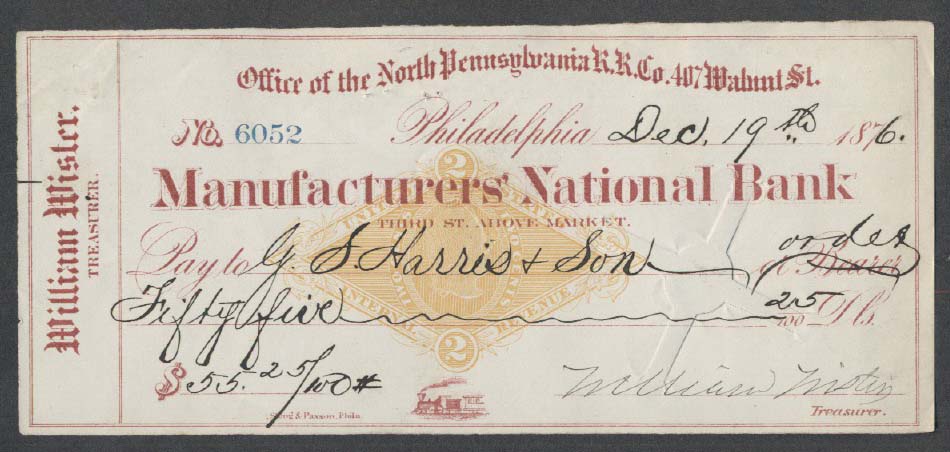 Office of the North Pennsylvania R.R. Co. 407 Walnut St.
No. 6052 Philadelphia Dec. 19th 1876.
Manufacturers' National Bank
THIRD ST. ABOVE MARKET.
Pay to G. S. Harris & Son or Bearer order
Fifty five 25/100 Dls.
$55.25/100
William Wister
Treasurer.
& Paxson, Phila.
William Wister.
TREASURER.
2
UNITED STATES
INTERNAL REVENUE
2